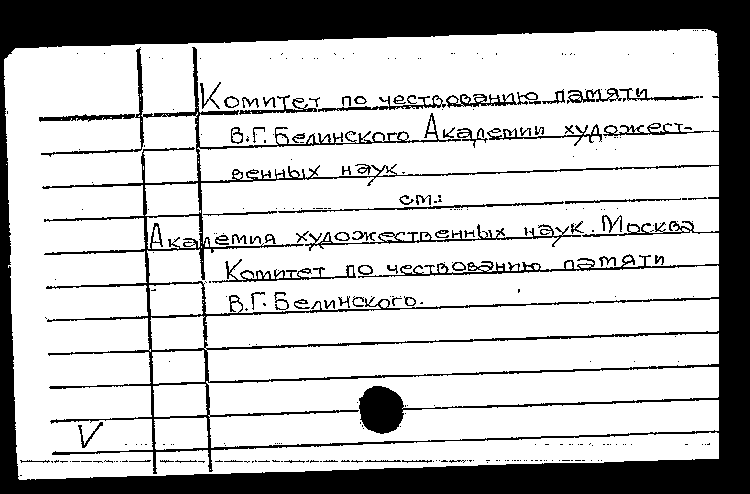 Комитет по чествованию памяти
В.Г. Белинского Академии художест-
венных наук.
см.:
Академия художественных наук. Москва
Комитет по чествованию памяти
В.Г. Белинского.
V